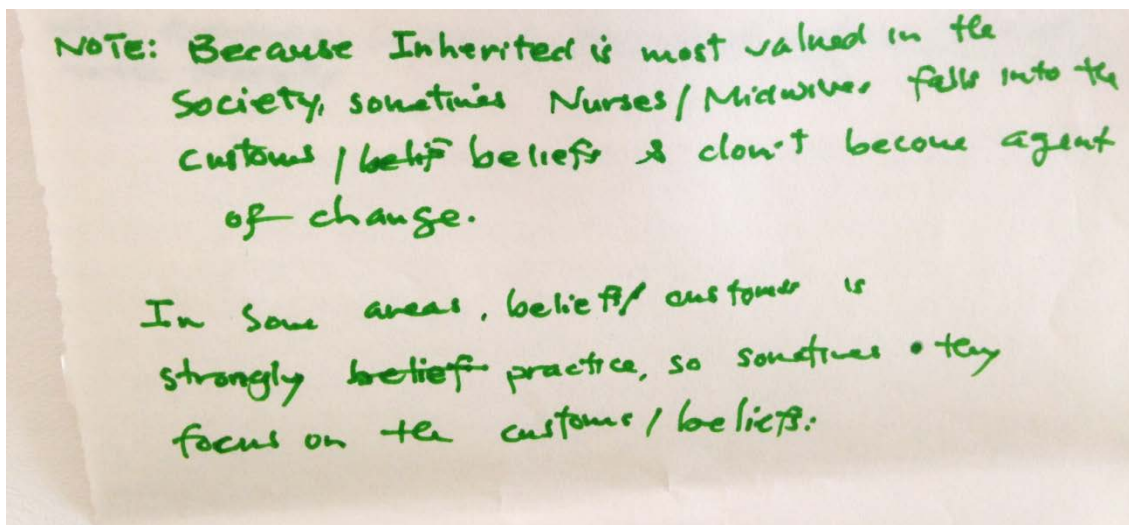 NOTE: Because Inherited is most valued in the
Society, sometimes Nurses/Midwives falls into the
customs / belif beliefs & don't become agent
of change.
In some areas, beliefs/ customs is
strongly belief practice, so sometimes they
focus on the customs / beliefs.